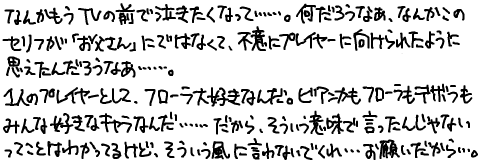 なんかもうTVの前で泣きたくなって……。何だろうなあ、なんかこの
セリフが「お父さん」にではなくて、不意にプレイヤーに向けられたように
思えたんだろうなあ……。
1人のプレイヤーとして、フローラ大好きなんだ。ビアンカもフローラもデボラも
みんな好きなキャラなんだ……だから、そういう意味で言ったんじゃない
ってことはわかってるけど、そういう風に言わないでくれ…お願いだから…。